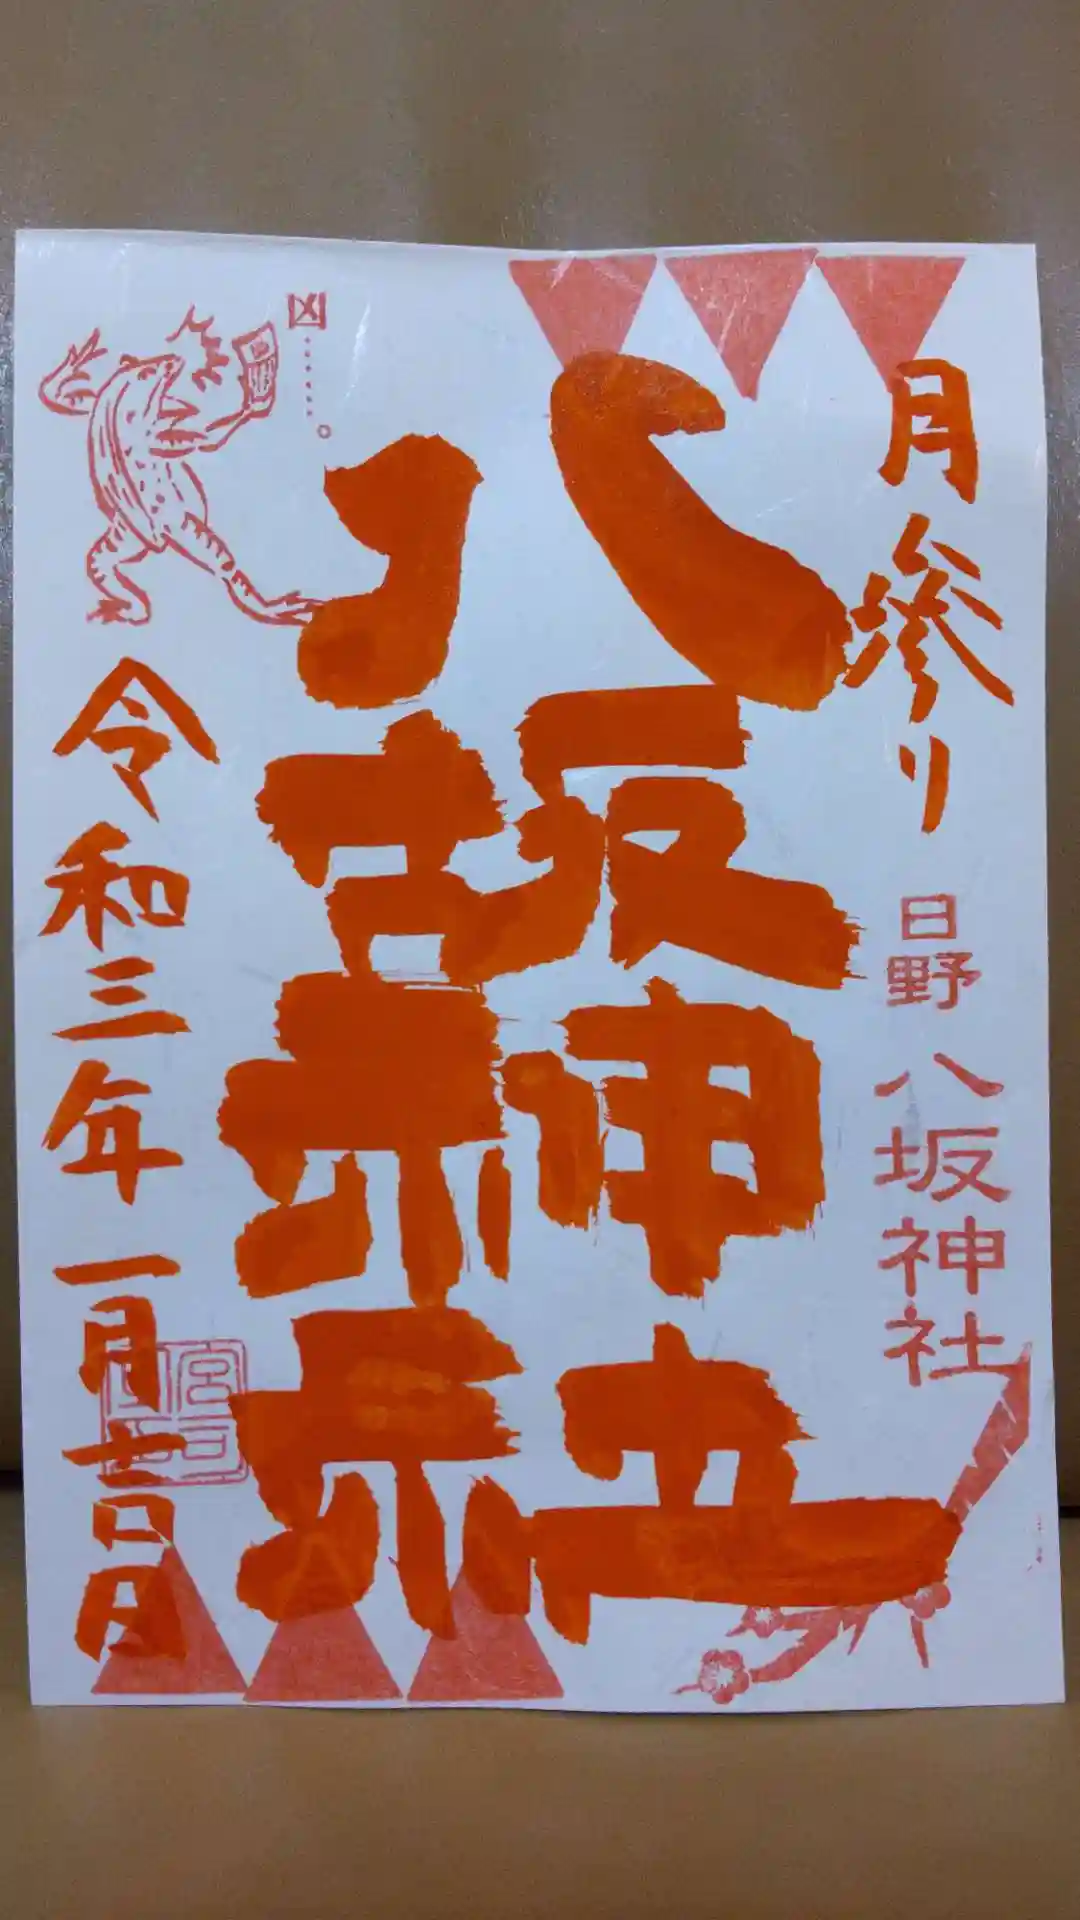 月参り
日野 八坂神社
八坂神社
凶
令和三年一月吉日
宮司